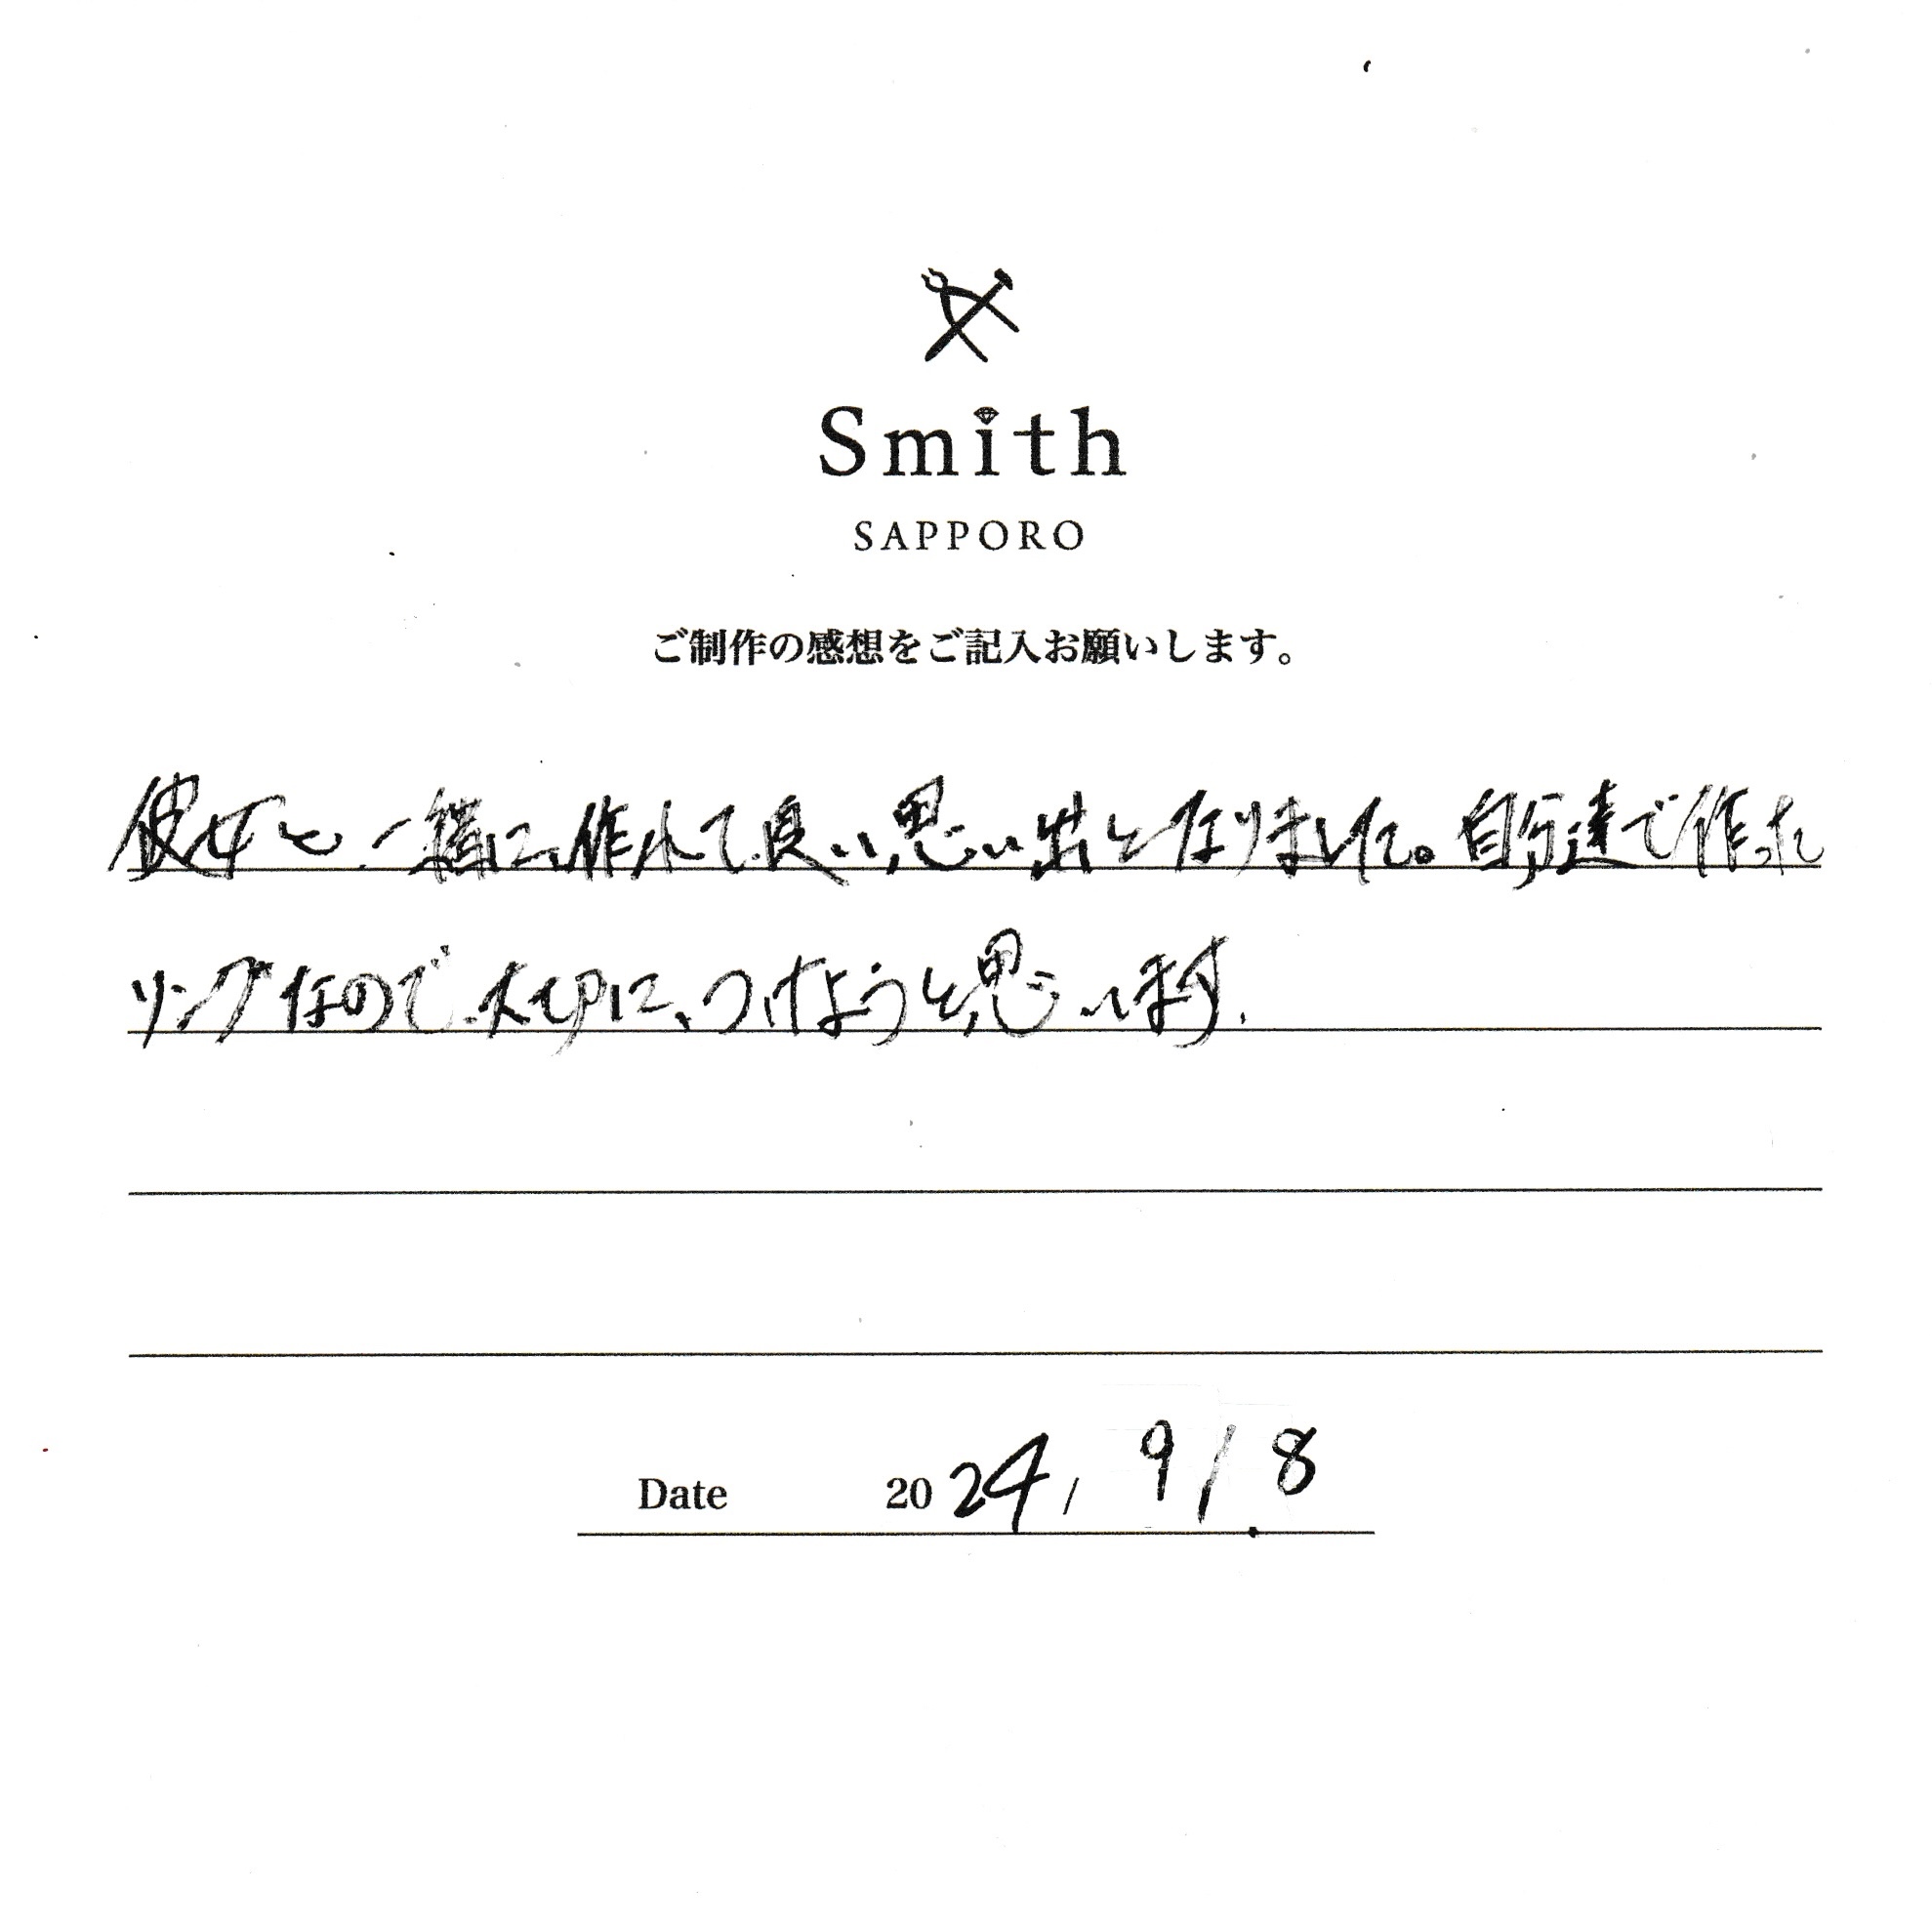 Smith
SAPPORO
ご制作の感想をご記入お願いします。
彼女と一緒に作れて良い思い出となりました。自分達で作った
リングなので大切に、つけようと思います.
Date 2024/ 9/8